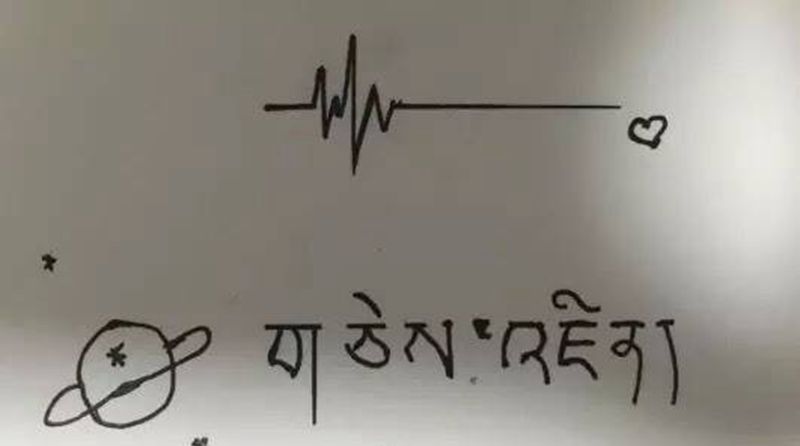 གཅེས་འཛིན།